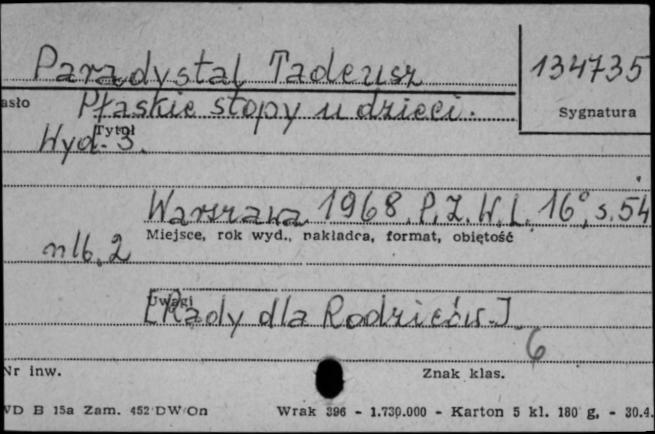 Paradystal Tadeusz 134735
asło Płaskie stopy u dzieci. Sygnatura
Tytuł
Wyd. 3.
Warszawa 1968. P.Z.W.L. 16°, s. 54
Miejsce, rok wyd., nakładca, format, objętość
nlb. 2
Uwagi
[Rady dla Rodziców.]
6
Nr inw. Znak klas.
WD B 15a Zam. 452 DW/On Wrak 396 - 1.730.000 - Karton 5 kl. 180 g. - 30.4.